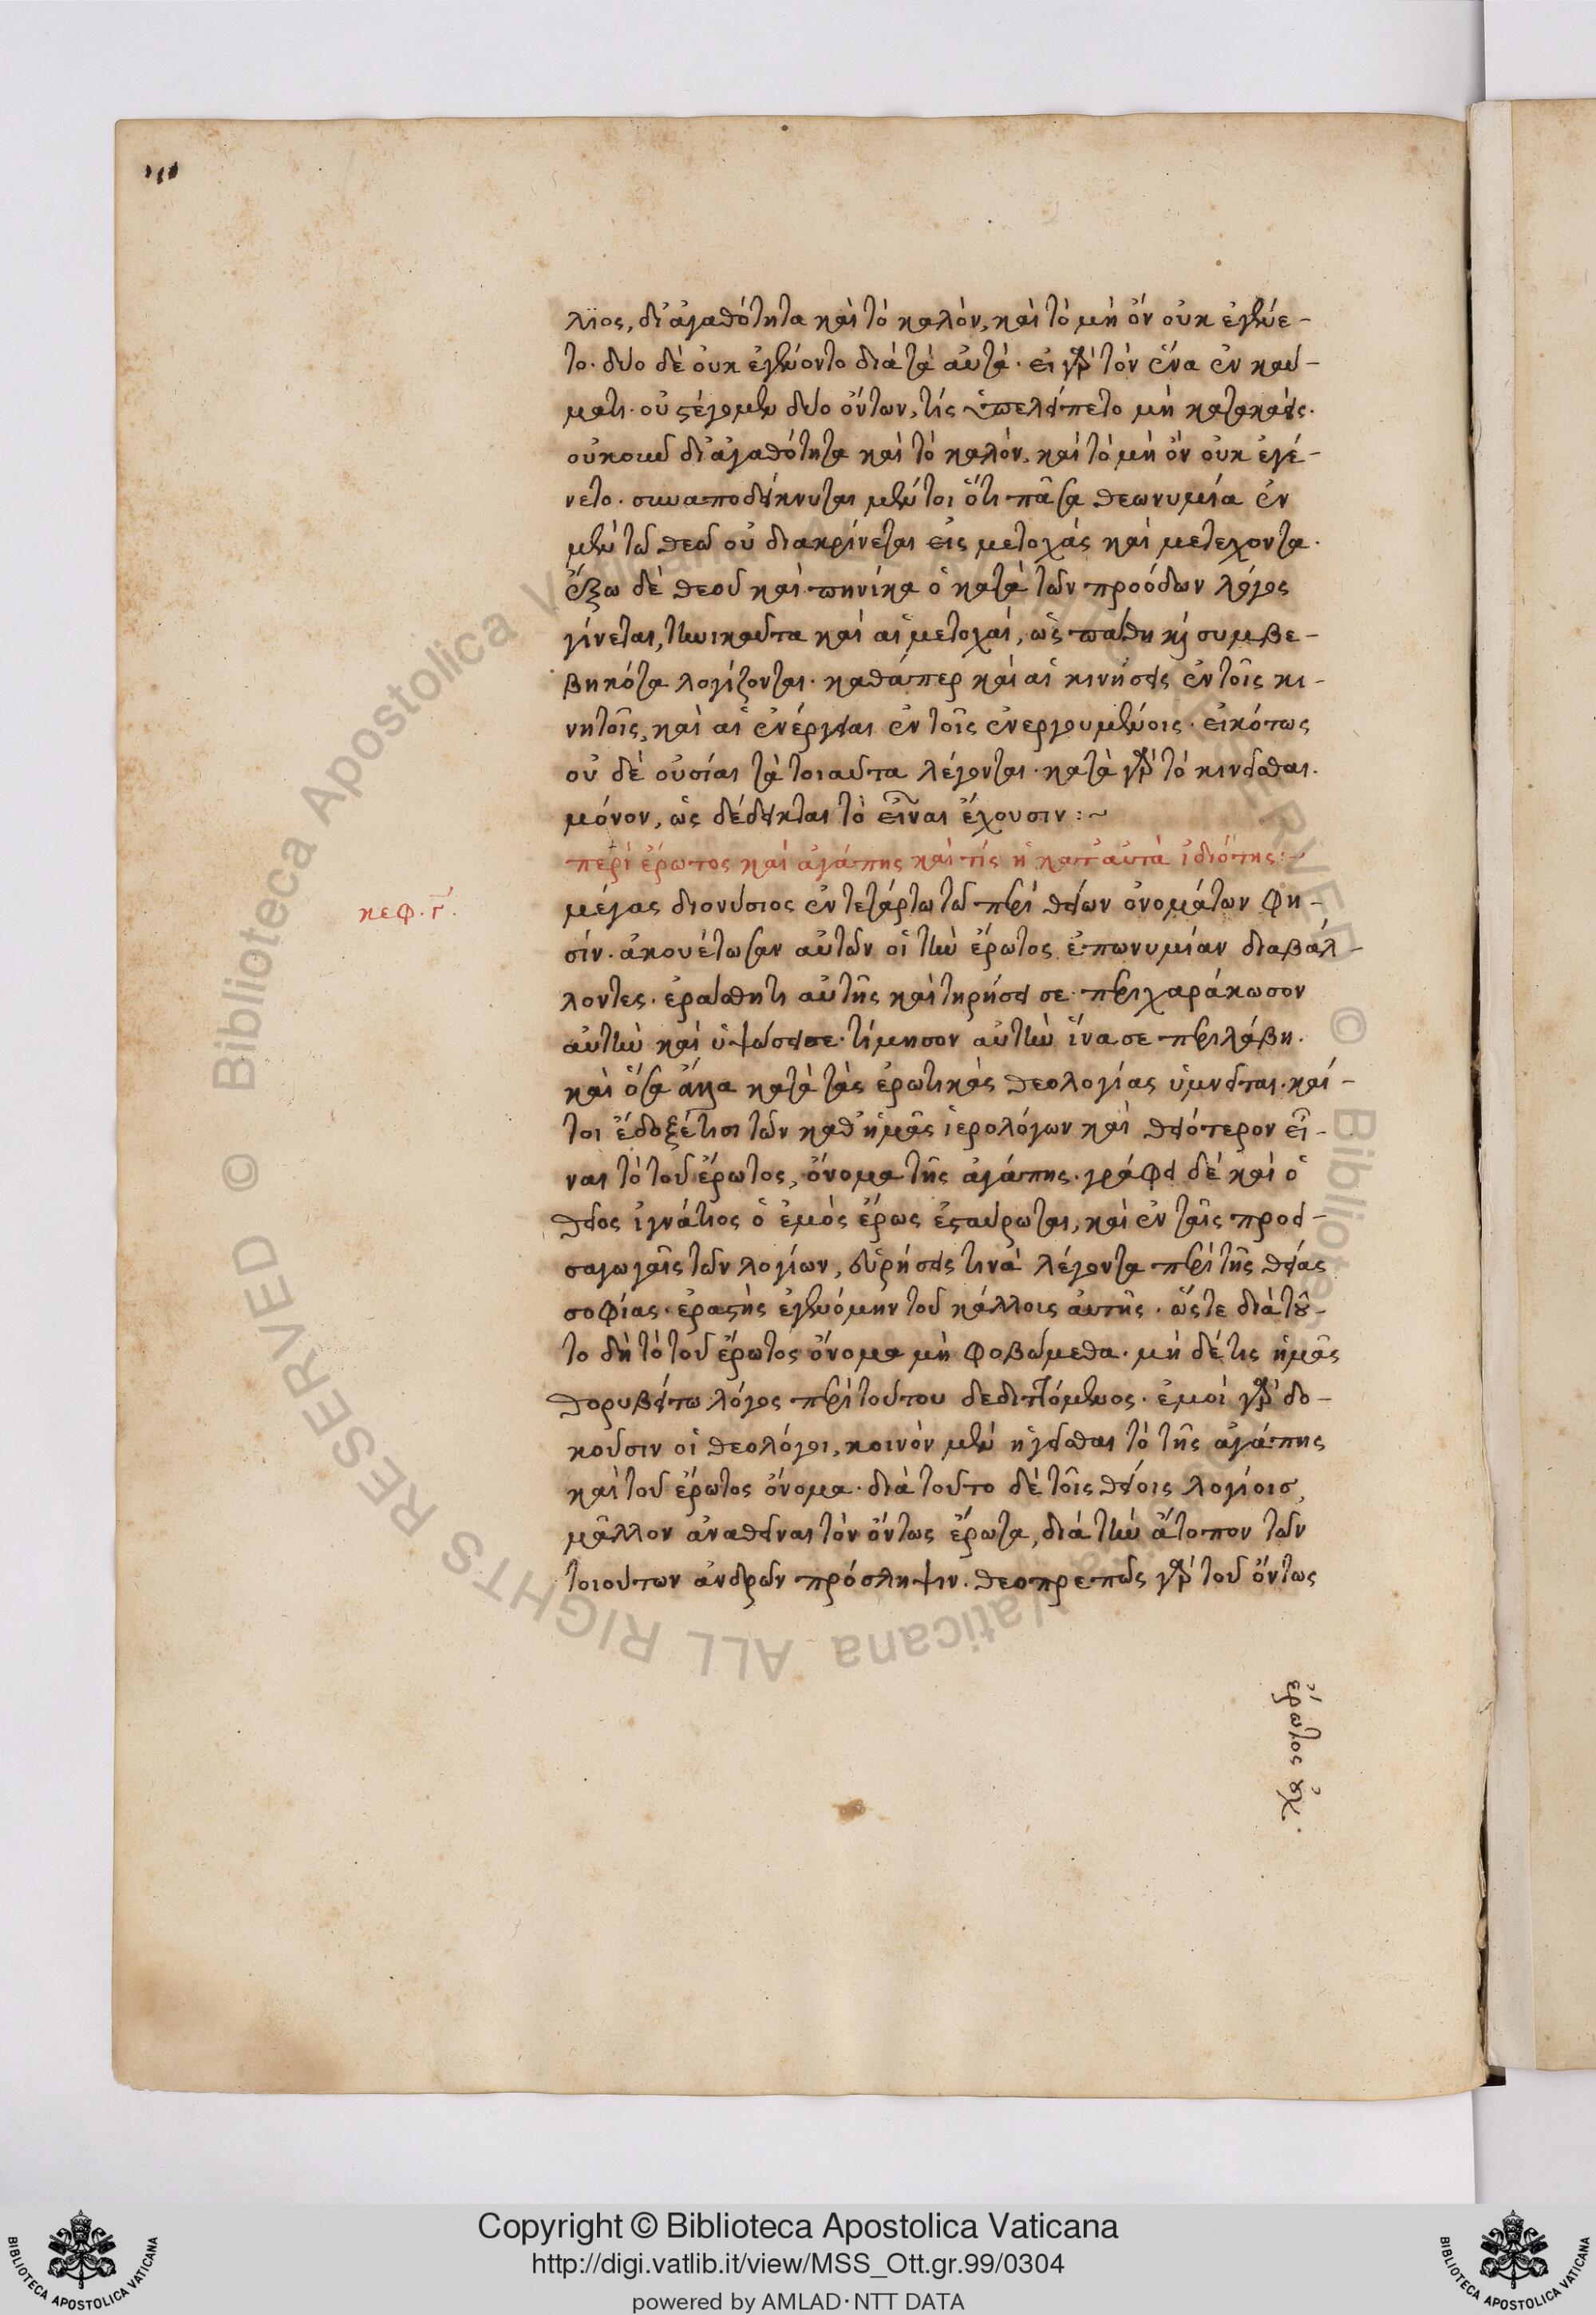 λιος, δι' ἀγαθότητα καὶ τὸ καλὸν, καὶ τὸ μὴ ὂν οὐκ ἐγένε-
το. δύο δὲ οὐκ ἐγένοντο διὰ τὰ αὐτὰ. εἰ γὰρ τὸν ἕνα ἐν καύ-
ματι οὐ στέγομεν δύο ὄντων, τίς ὑπελείπετο μὴ κατακαείς.
οὐκοῦν δι' ἀγαθότητα καὶ τὸ καλὸν, καὶ τὸ μὴ ὂν οὐκ ἐγέ-
νετο. συναποδείκνυται μέντοι ὅτι πᾶσα θεωνυμία ἐν
μὲν τῶ θεῶ οὐ διακρίνεται εἰς μετοχάς καὶ μετέχοντα.
ἔξω δὲ θεοῦ καὶ πηνίκα ὁ κατὰ τῶν προόδων λόγος
γίνεται, τηνικαῦτα καὶ αἱ μετοχαί, ὡς πάθη καὶ συμβε-
βηκότα λογίζονται. καθάπερ καὶ αἱ κινήσεις ἐν τοῖς κι-
νητοῖς, καὶ αἱ ἐνέργειαι ἐν τοῖς ἐνεργουμένοις. εἰκότως
οὐ δὲ οὐσίαι τὰ τοιαῦτα λέγονται. κατὰ γὰρ τὸ κινεῖσθαι
μόνον, ὡς δέδεικται τὸ εἶναι ἔχουσιν :~
περὶ ἔρωτος καὶ ἀγάπης καὶ τίς ἡ κατ' αὐτὰ ἰδιότης :~
κεφ. γ'.
μέγας διονύσιος ἐν τετάρτω τῶ περὶ θείων ὀνομάτων φη-
σίν. ἀκουέτωσαν αὐτῶν οἱ τὴν ἔρωτος ἐπωνυμίαν διαβάλ-
λοντες. ἐράσθητι αὐτῆς καὶ τηρήσει σε. περιχαράκωσον
αὐτὴν καὶ ὑψώσει σε. τίμησον αὐτὴν ἵνα σε περιλάβη.
καὶ ὅσα ἄλλα κατὰ τὰς ἐρωτικὰς θεολογίας ὑμνεῖται. καί-
τοι ἔδοξέ τισι τῶν καθ' ἡμᾶς ἱερολόγων καὶ θειότερον εἶ-
ναι τὸ τοῦ ἔρωτος, ὄνομα τῆς ἀγάπης. γράφει δὲ καὶ ὁ
θεῖος ἰγνάτιος ὁ ἐμὸς ἔρως ἐσταύρωται, καὶ ἐν ταῖς προει-
σαγωγαῖς τῶν λογίων, εὑρήσεις τινὰ λέγοντα περὶ τῆς θείας
σοφίας. ἐραστὴς ἐγενόμην τοῦ κάλλους αὐτῆς. ὥστε διὰ τοῦ-
το δὴ τὸ τοῦ ἔρωτος ὄνομα μὴ φοβώμεθα. μὴ δέ τις ἡμᾶς
θορυβείτω λόγος περὶ τούτου δεδιττόμενος. ἐμοὶ γὰρ δο-
κοῦσιν οἱ θεολόγοι, κοινὸν μὲν ἡγεῖσθαι τὸ τῆς ἀγάπης
καὶ τοῦ ἔρωτος ὄνομα. διὰ τοῦτο δὲ τοῖς θείοις λογίοις,
μᾶλλον ἀναθεῖναι τὸν ὄντως ἔρωτα, διὰ τὴν ἄτοπον τῶν
τοιούτων ἀνδρῶν πρόσληψιν. θεοπρεπῶς γὰρ τοῦ ὄντως
ἔρωτος οὐχ.
© Biblioteca Apostolica Vaticana ALL RIGHTS RESERVED
Copyright © Biblioteca Apostolica Vaticana
http://digi.vatlib.it/view/MSS_Ott.gr.99/0304
powered by AMLAD·NTT DATA
BIBLIOTECA APOSTOLICA VATICANA
BIBLIOTECA APOSTOLICA VATICANA